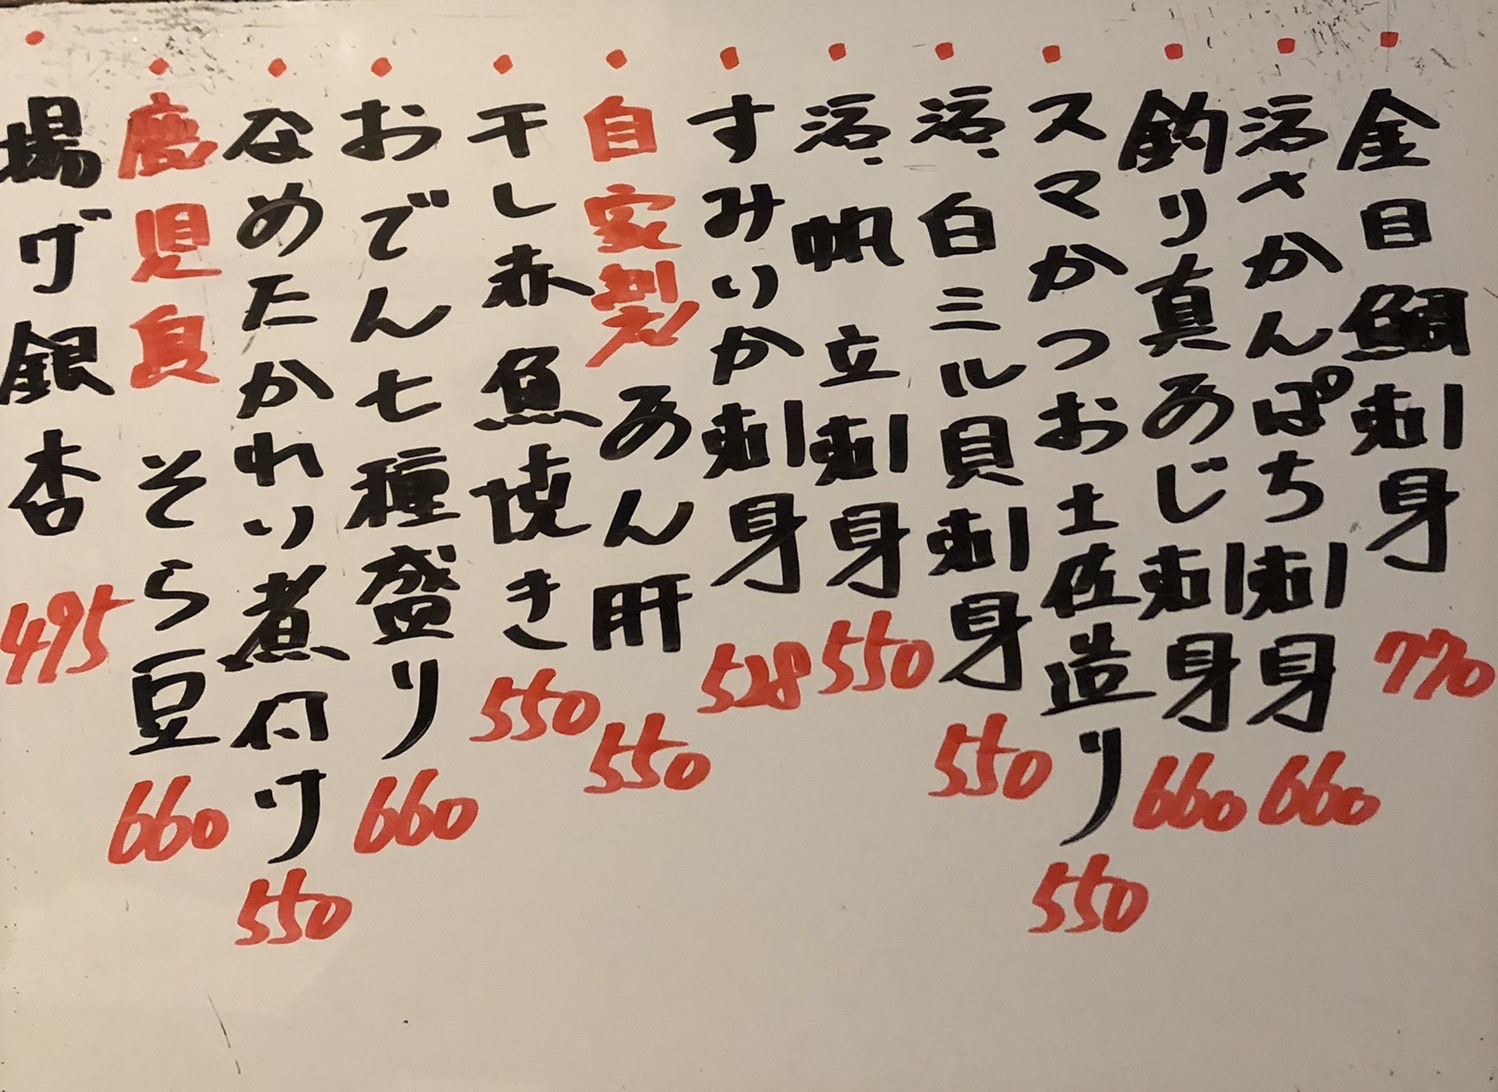 金目鯛刺身 770
活〆かんぱち刺身 660
釣り真あじ刺身 660
スマかつお土佐造り 550
活白ミル貝刺身 550
活帆立刺身 550
すみいか刺身 528
自家製あん肝 550
干し赤魚焼き 550
おでん七種盛り 660
なめたかれい煮付け 550
鹿児島そら豆 660
揚げ銀杏 495